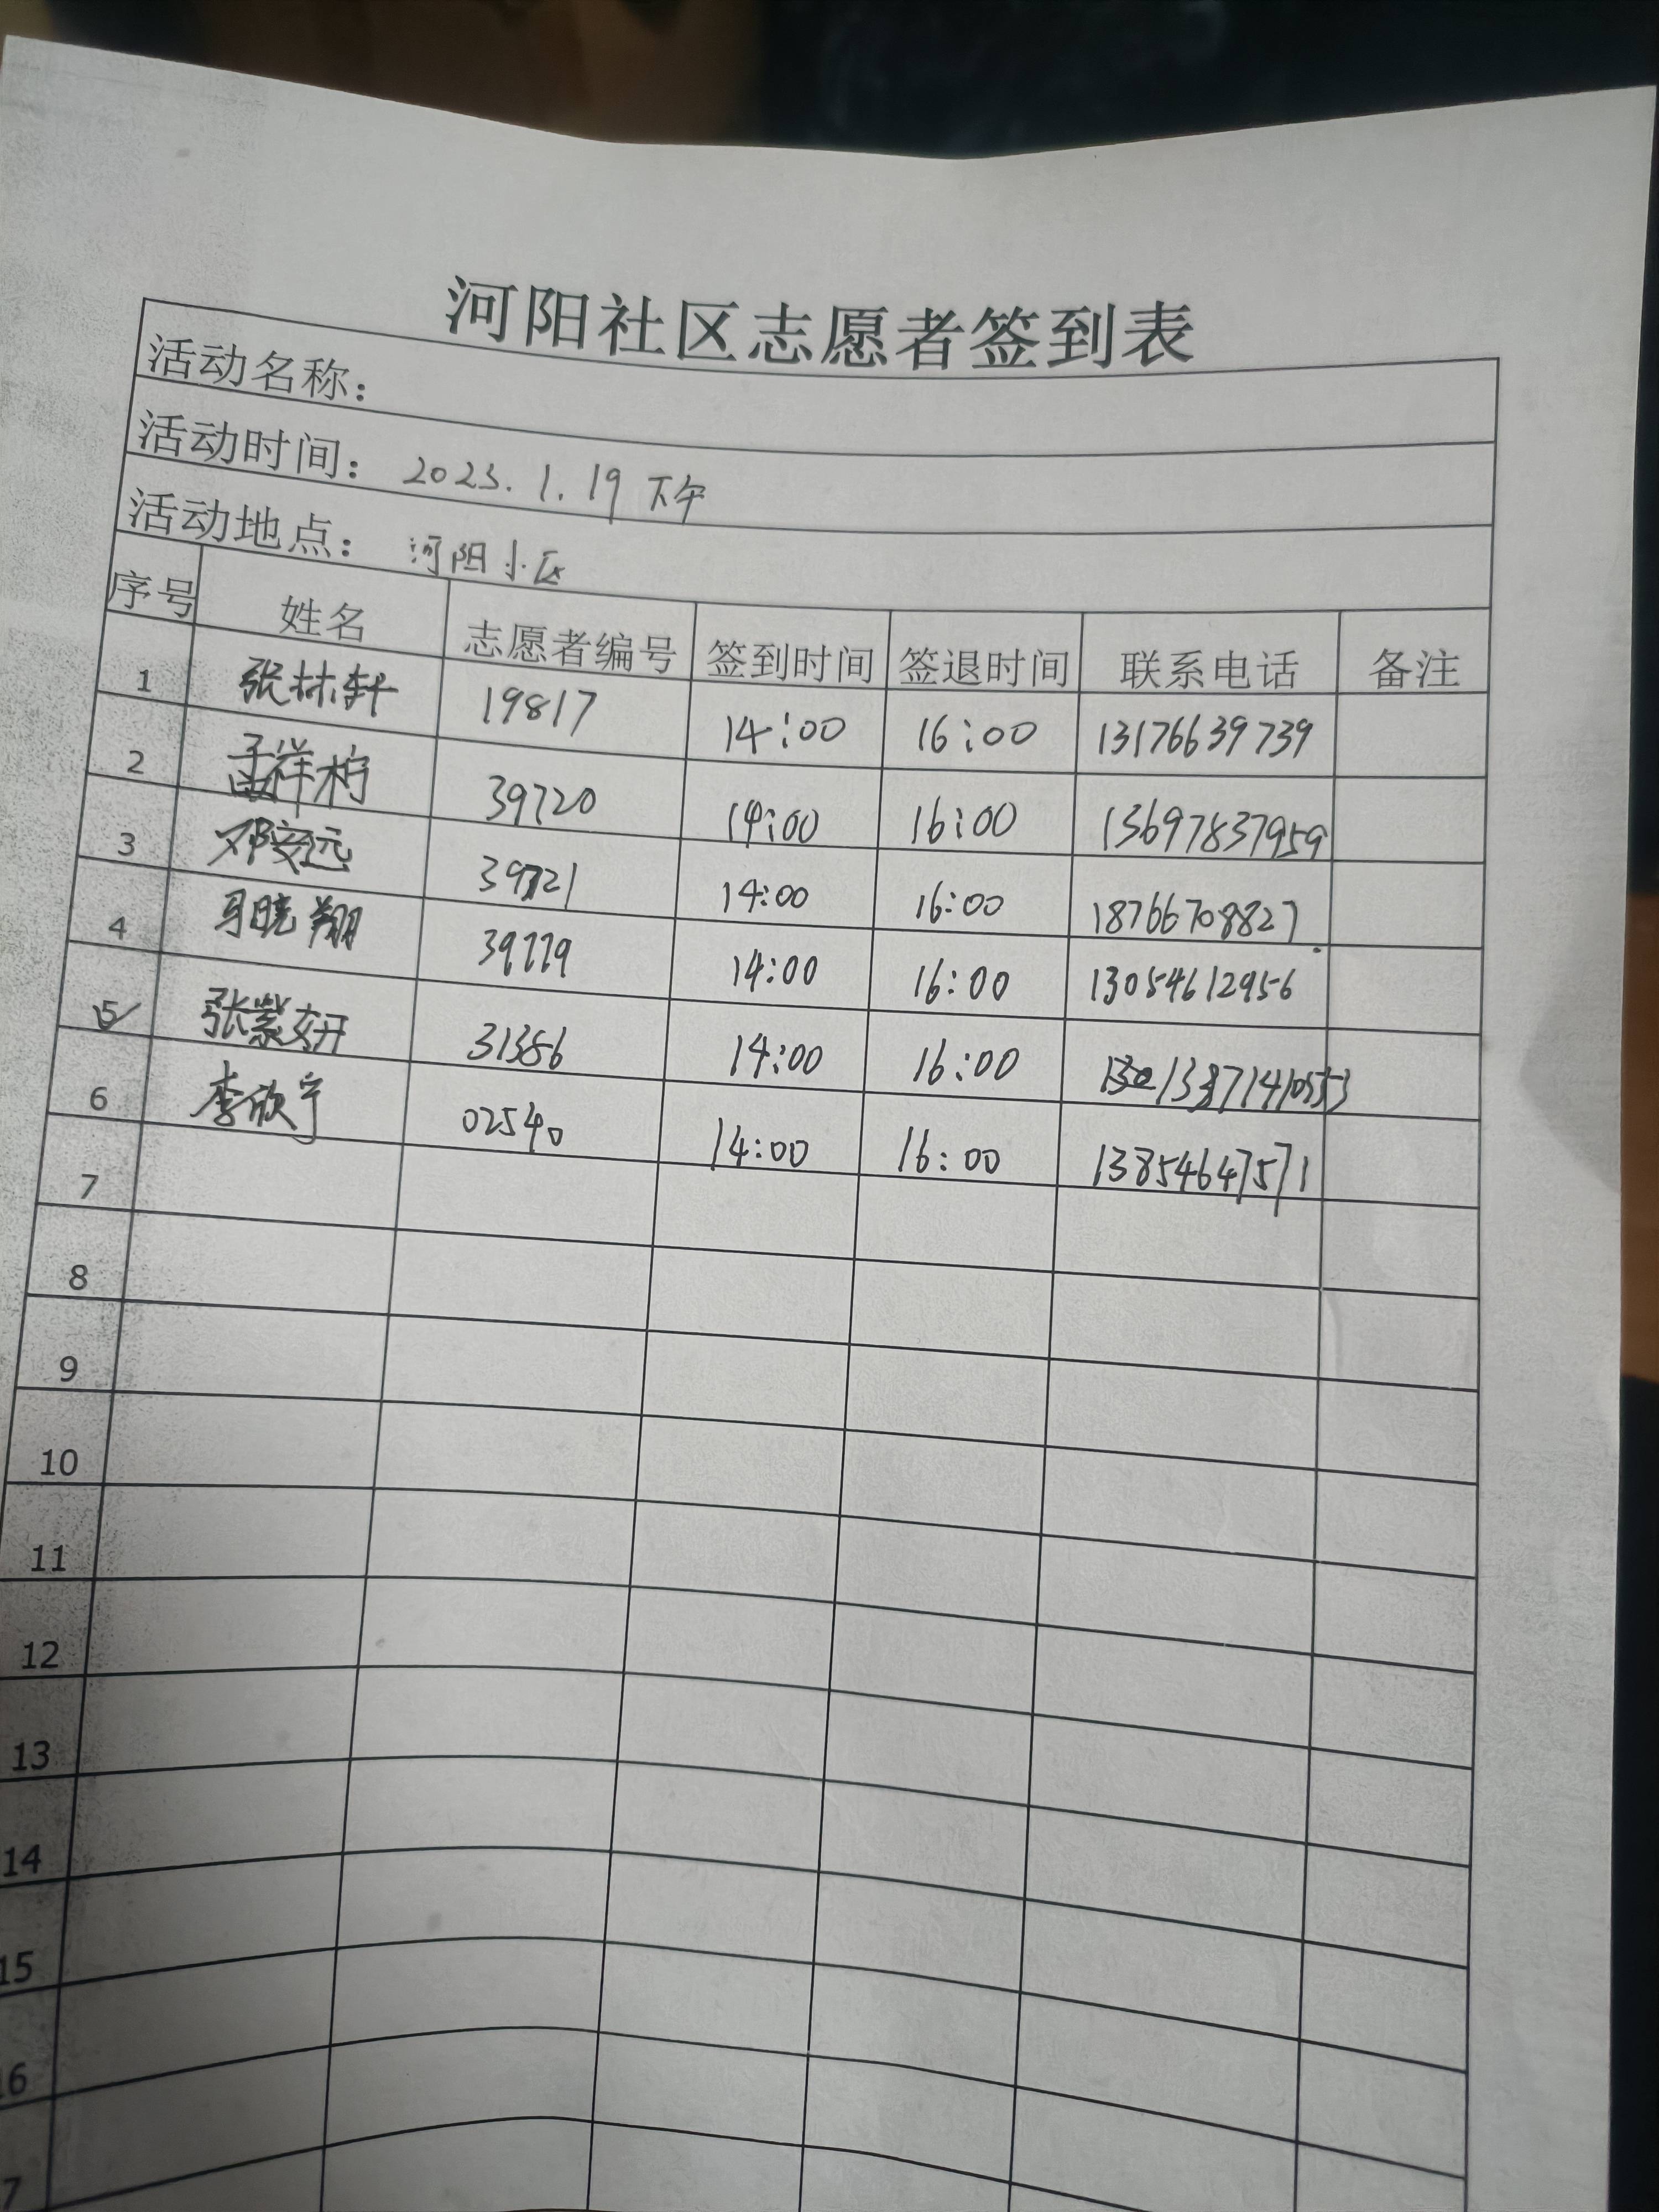 河阳社区志愿者签到表
活动名称：
活动时间： 2023.1.19 下午
活动地点： 河阳小区
序号 姓名 志愿者编号 签到时间 签退时间 联系电话 备注
1 张林轩 19817 14:00 16:00 13176639739
2 孟祥柠 39720 14:00 16:00 13697837959
3 邓安远 39721 14:00 16:00 18766708827
4 马晓翔 39779 14:00 16:00 13054612956
5 张紫妍 31386 14:00 16:00
6 李欣宁 02540 14:00 16:00 13854647571
7
8
9
10
11
12
13
14
15
16
7